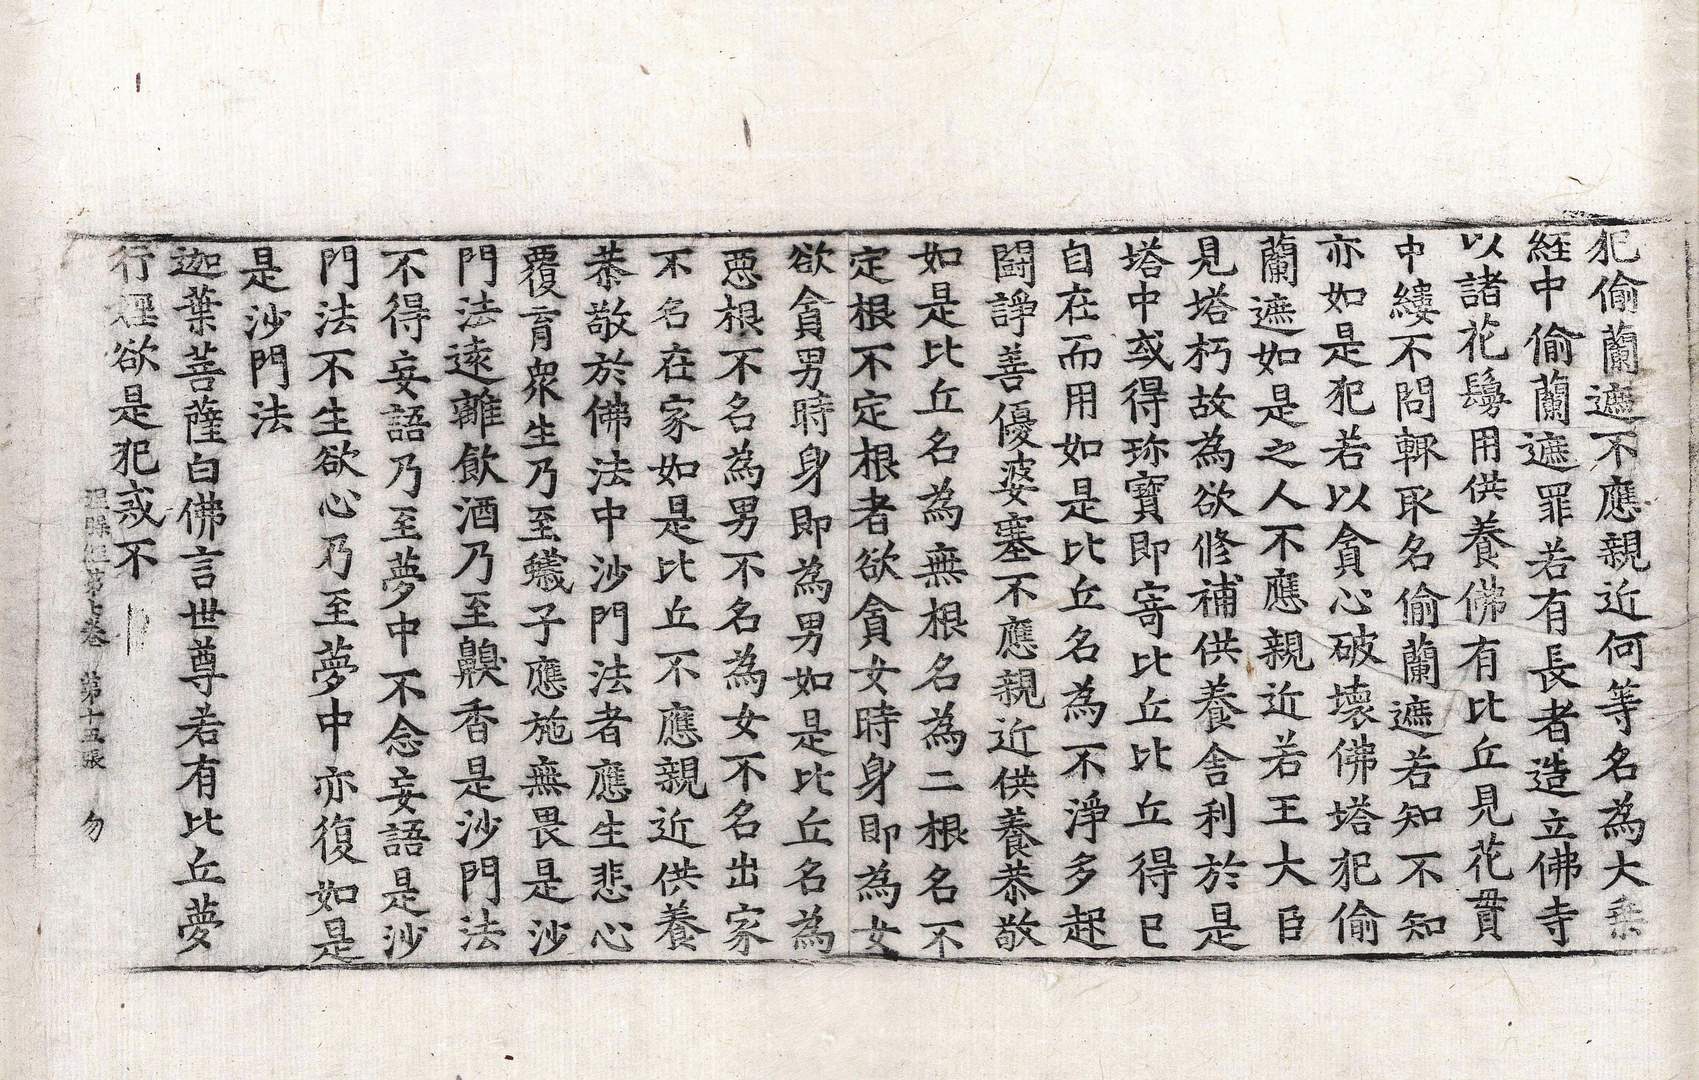 犯偷蘭遮不應親近何等名為大乗
経中偷蘭遮罪若有長者造立佛寺
以諸花鬘用供養佛有比丘見花貫
中縷不問輙取名偷蘭遮若知不知
亦如是犯若以貪心破壞佛塔犯偷
蘭遮如是之人不應親近若王大臣
見塔朽故為欲修補供養舎利於是
塔中或得珎寶即寄比丘比丘得已
自在而用如是比丘名為不淨多起
鬪諍善優婆塞不應親近供養恭敬
如是比丘名為無根名為二根名不
定根不定根者欲貪女時身即為女
欲貪男時身即為男如是比丘名為
悪根不名為男不名為女不名出家
不名在家如是比丘不應親近供養
恭敬於佛法中沙門法者應生悲心
覆育衆生乃至蟻子應施無畏是沙
門法遠離飲酒乃至齅香是沙門法
不得妄語乃至夢中不念妄語是沙
門法不生欲心乃至夢中亦復如是
是沙門法
迦葉菩薩白佛言世尊若有比丘夢
行婬欲是犯戒不
涅槃經第七卷 第十五張 勿